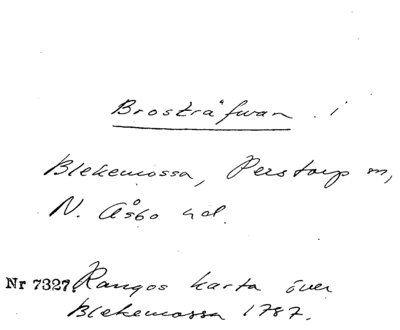 Brosträfwan i
Blekemossa, Perstorp sn,
N. Åsbo hd.
Nr 7327. Rangos karta över
Blekemossa 1787.